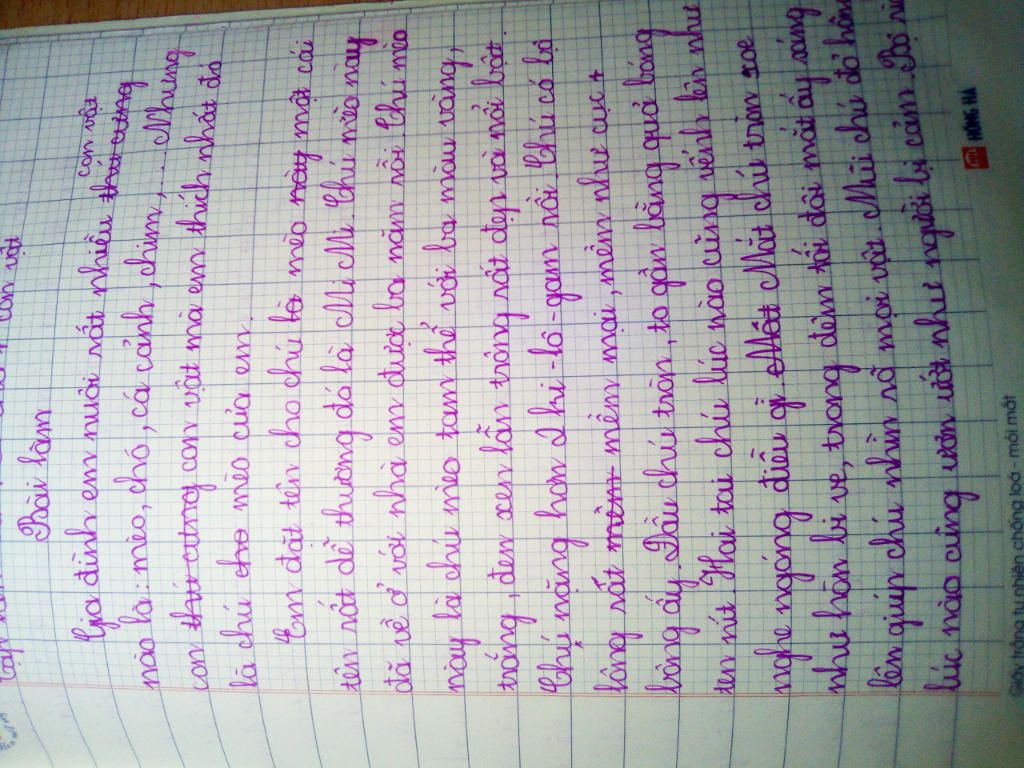 con vật
Bài làm
Gia đình em nuôi rất nhiều thú cưng con vật
nào là: mèo, chó, cá cảnh, chim,... Nhưng
con thú cưng con vật mà em thích nhất đó
là chú cho mèo của em.
Em đặt tên cho chú là mèo này một cái
tên rất dễ thương đó là Mi Mi. Chú mèo này
đã về ở với nhà em được ba năm rồi. Chú mèo
này là chú mèo tam thể với ba màu vàng,
trắng, đen xen lẫn trông rất đẹp và nổi bật.
Chú nặng hơn 2 ki-lô-gam rồi. Chú có bộ
lông rất mềm mềm mại, mềm như cục
bông ấy. Đầu chú tròn, to gần bằng quả bóng
ten nít. Hai tai chú lúc nào cũng vểnh lên như
nghe ngóng điều gì. Mắt Mắt chú tròn xoe
như hòn bi ve, trong đêm tối đôi mắt ấy sáng
lên giúp chú nhìn rõ mọi vật. Mũi chú đỏ hồng
lúc nào cũng ươn ướt như người bị cảm. Bộ
HỒNG HÀ
Giấy trắng tự nhiên chống loá - mỏi mắt